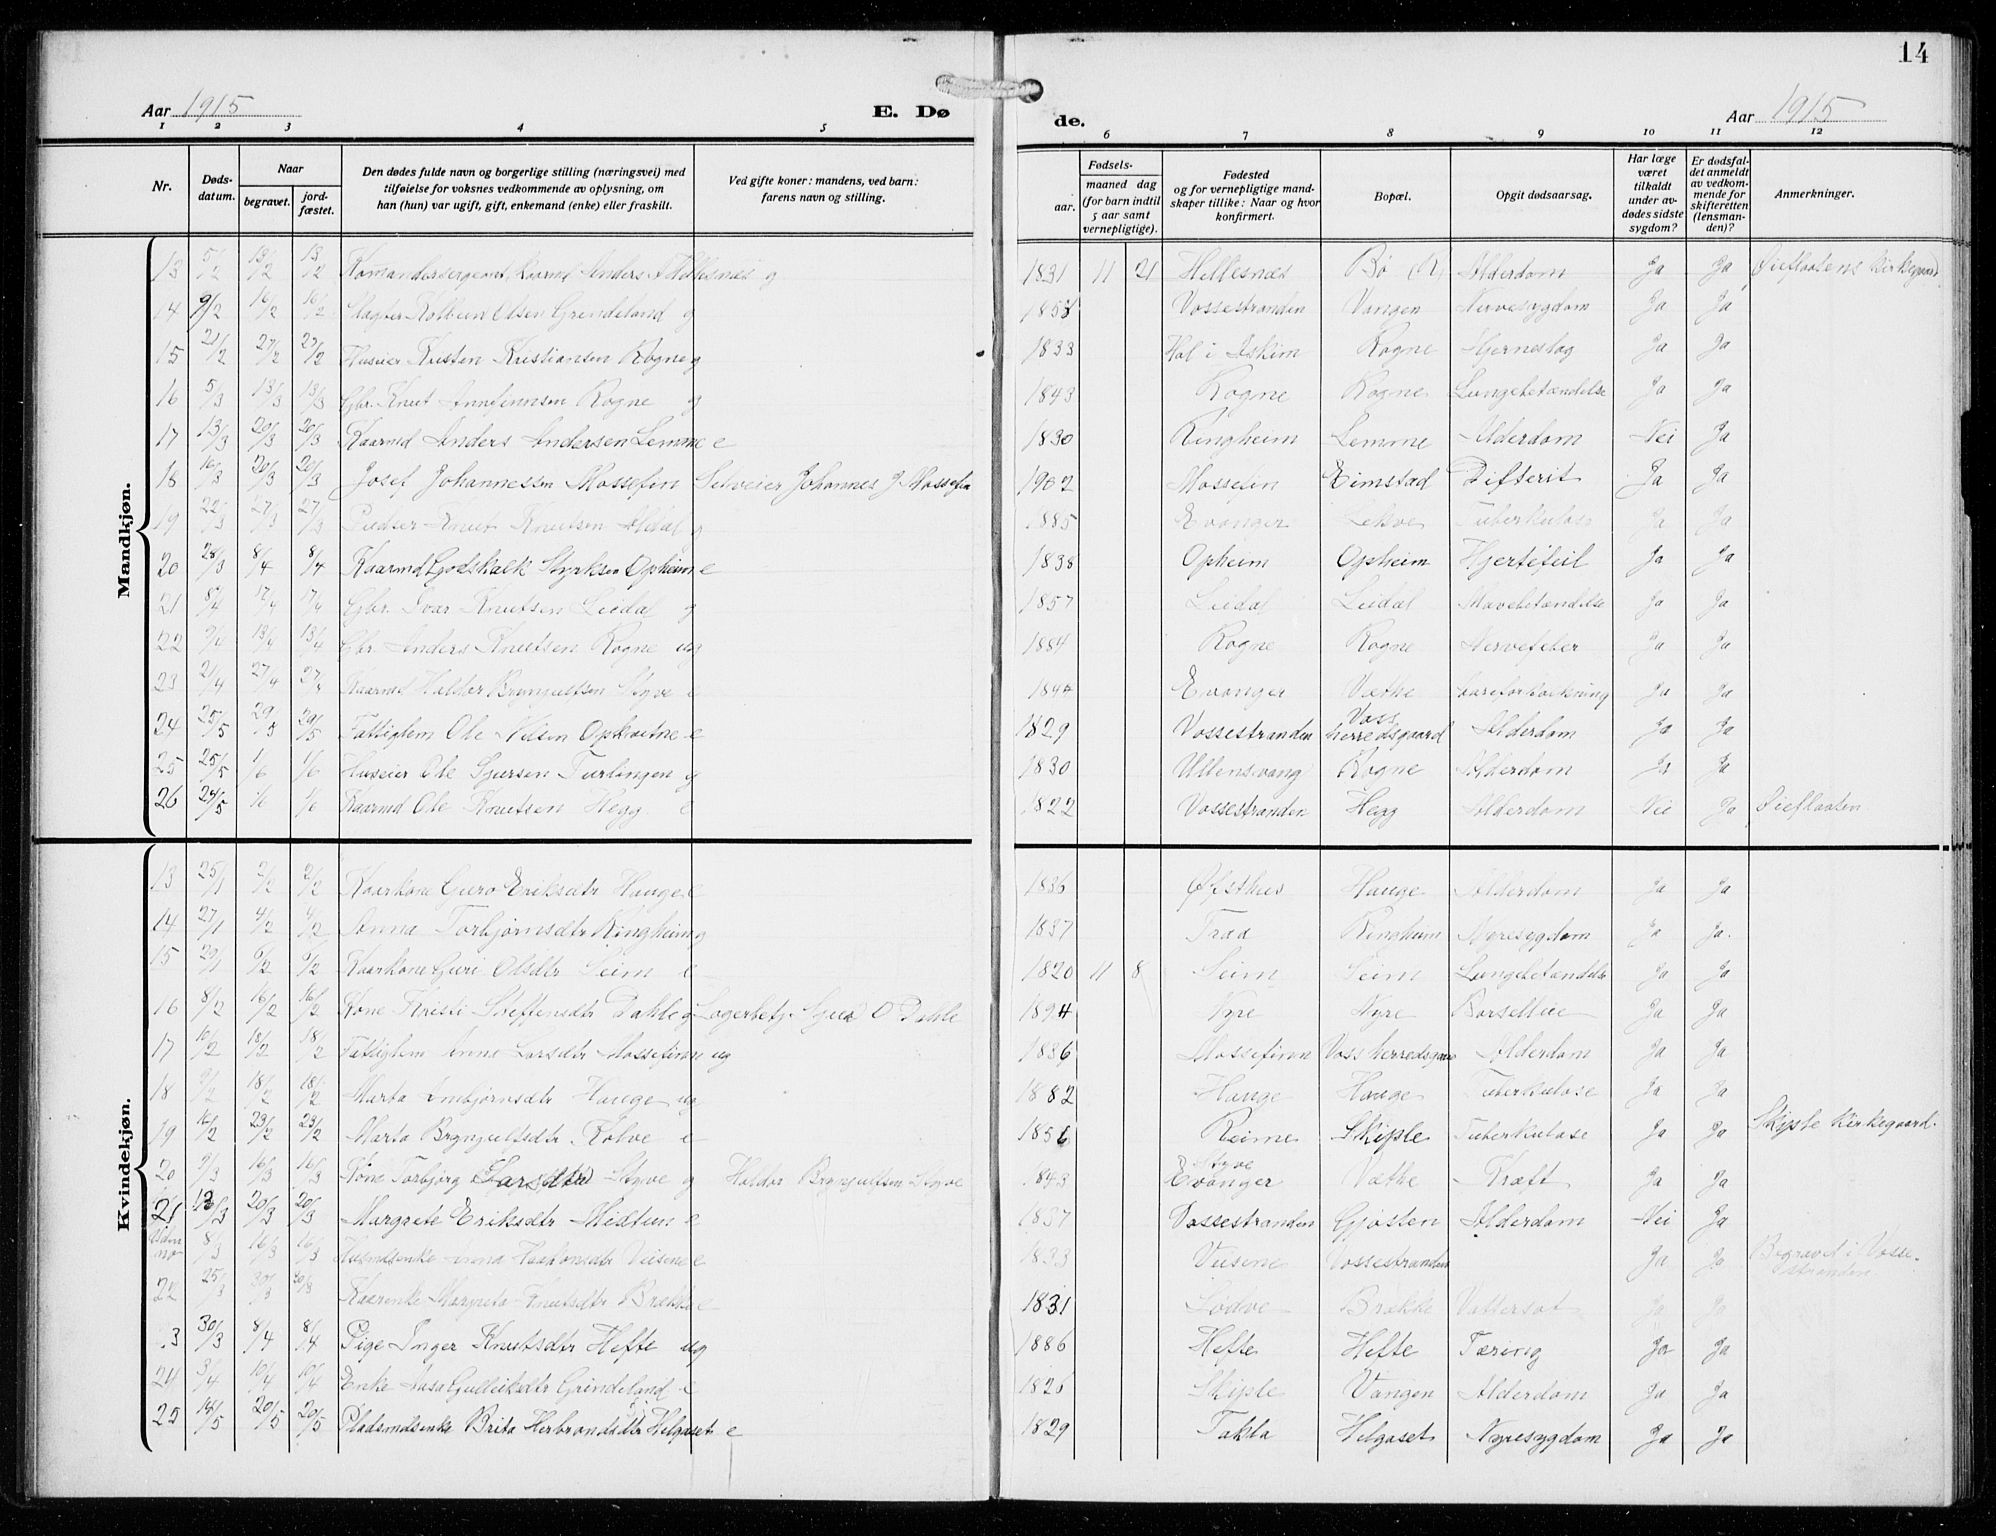 14
Aar 1915 E. Dø de. Aar 1915
1 2 3 4 5 6 7 8 9 10 11 12
Nr. Døds-datum. Naar begravet. jord-fæstet. Den dødes fulde navn og borgerlige stilling (næringsvei) med tilføielse for voksnes vedkommende av oplysning, om han (hun) var ugift, gift, enkemand (enke) eller fraskilt. Ved gifte koner: mandens, ved barn: farens navn og stilling. Fødsels- aar. maaned dag (for barn indtil 5 aar samt vernepligtige). Fødested og for vernepligtige mand-skaper tillike: Naar og hvor konfirmert. Bopæl. Opgit dødsaarsag. Har læge været tilkaldt under av-dødes sidste sygdom? Er dødsfal-det anmeldt av vedkom-mende for skifteretten (lensman-den)? Anmerkninger.
Mandkjøn.
13 5/2 13/2 13/2 Komandersergeant, Kaarmd Anders A Hellesnæs g 1831 11 21 Hellesnæs Bø Alderdom Ja Ja Øieflaatens Kirkegaard
14 9/2 16/2 16/2 Slagter Kolbein Olsen Grindeland g 1858 Vossestranden Vangen Nervesygdom Ja Ja
15 21/2 27/2 27/2 Huseier Kristen Kristiansen Rogne g 1833 Hol i Askim Rogne Hjerneslag Ja Ja
16 5/3 13/3 13/3 Gbr. Knut Annfinnsen Rogne g 1843 Rogne Rogne Lungebetændelse Ja Ja
17 13/3 20/3 20/3 Kaarmd Anders Andersen Lemme e 1830 Ringheim Lemme Alderdom Nei Ja
18 16/3 20/3 20/3 Josef Johannessen Mossefin Selveier Johannes J Mossefin 1902 Mossefin Eimstad Difterit Ja Ja
19 22/3 27/3 27/3 Knut Knutsen g 1885 Evanger Lekve Tuberkulose Ja Ja
20 28/3 8/4 8/4 Kaarmd Godskalk Styrksen Opheim e 1838 Opheim Opheim Hjertefeil Ja Ja
21 8/4 17/4 17/4 Gbr. Ivar Knutsen Liedal g 1857 Liedal Liedal Mavebetændelse Ja Ja
22 9/4 13/4 13/4 Gbr. Anders Knutsen Rogne ug 1884 Rogne Rogne Nervefeber Ja Ja
23 21/4 27/4 27/4 Kaarmd Haldor Brynjulfsen Styve e Evanger Væthe Aareforkalkning Ja Ja
24 25/5 29/5 29/5 Fattiglem Ole Nilsen Opkvitne e 1829 Vossestranden Voss herredsgaard Alderdom Ja Ja
25 25/5 1/6 1/6 Huseier Ole Sjursen Turlingen g 1830 Ullensvang Rogne Alderdom Ja Ja
26 24/5 1/6 1/6 Kaarmd Ole Knutsen Hegg e 1822 Vossestranden Hegg Alderdom Nei Ja Øieflaaten
Kvindekjøn.
13 25/1 2/2 2/2 Kaarkone Guro Eriksdtr Hauge e 1836 Øfsthus Hauge Alderdom Ja Ja
14 27/1 4/2 4/2 Anna Torbjørnsdtr Ringheim g 1837 Traa Ringheim Nyresygdom Ja Ja.
15 29/1 6/2 6/2 Kaarkone Guri Olsdtr Seim e 1820 11 8 Seim Seim Lungebetændelse Ja Ja
16 8/2 16/2 16/2 Kone Kristi Steffensdtr Dahle g Lagerbetj. Sjur O Dahle 1894 Nyre Nyre Barselseie Ja Ja
17 10/2 18/2 18/2 Fattiglem Anna Larsdtr Mossefinn ug 1836 Mossefinn Voss herredsgaar Alderdom Ja Ja
18 9/2 18/2 18/2 Marta Arnbjørnsdtr Hauge ug 1882 Hauge Hauge Tuberkulose Ja Ja
19 16/2 23/2 23/2 Marta Brynjulfsdtr Rolve e 1856 Reime Skiple Tuberkulose Ja Ja Skiple Kirkegaard.
20 9/3 16/3 16/3 Kone Torbjørg Larsdtr Styve g Haldor Brynjulfsen Styve 1843 Styve Evanger Væthe Kræft Ja Ja
21 12/3 20/3 20/3 Margrete Eriksdtr Midtun e 1837 Vossestranden Gjøsten Alderdom Nei Ja
Uden no 8/3 16/3 16/3 Husmdsenke Anna Haakonsdtr Vusene e 1833 Vusene Vossestranden Ja Ja Begravet i Vosse-stranden
22 25/3 30/3 30/3 Kaarenke Margreta Knutsdtr Brække e 1831 Lødve Brække Vattersot Ja Ja
23 30/3 8/4 8/4 Pige Inger Knutsdtr Hefte ug 1886 Hefte Hefte Tæring Ja Ja
24 3/4 10/4 10/4 Enke Aasa Gulleiksdtr Grindeland e 1826 Skiple Vangen Alderdom Ja Ja
25 14/5 20/5 20/5 Pladsmdsenke Brita Herbrandsdtr Helgaset e 1829 Takla Helgaset Nyresygdom Ja Ja